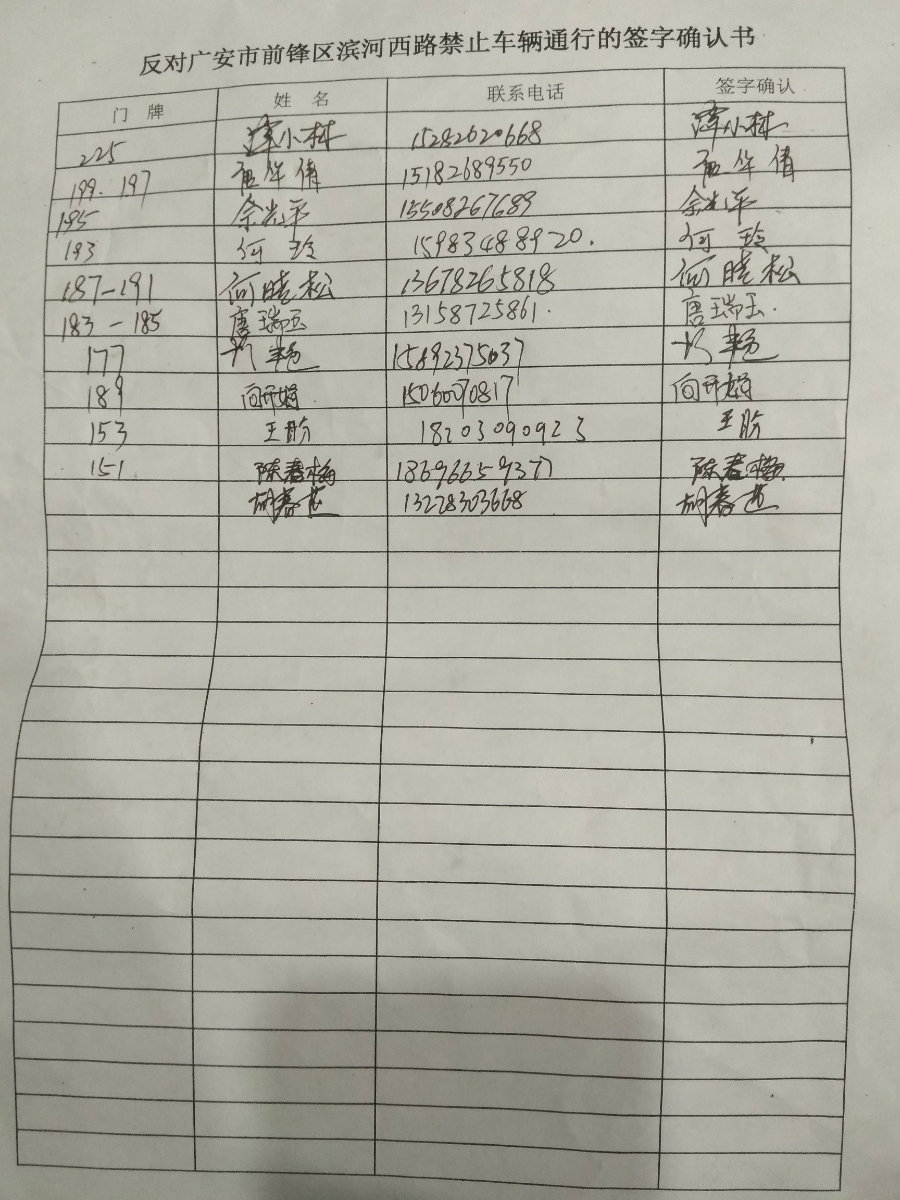 反对广安市前锋区滨河西路禁止车辆通行的签字确认书
门 牌 姓 名 联系电话 签字确认
225 谭小林 15282620668 谭小林
199. 197 15182689550
195 余光平 15508267689 余光平
193 何玲 15983488920. 何玲
187-191 何晓松 13678265818 何晓松
183-185 唐瑞玉 13158725861. 唐瑞玉.
177 15892375037
189 向开娟 1506090817 向开娟
153 王盼 18203090923 王盼
151. 陈春梅 18696659377 陈春梅
胡春 13278303668 胡春